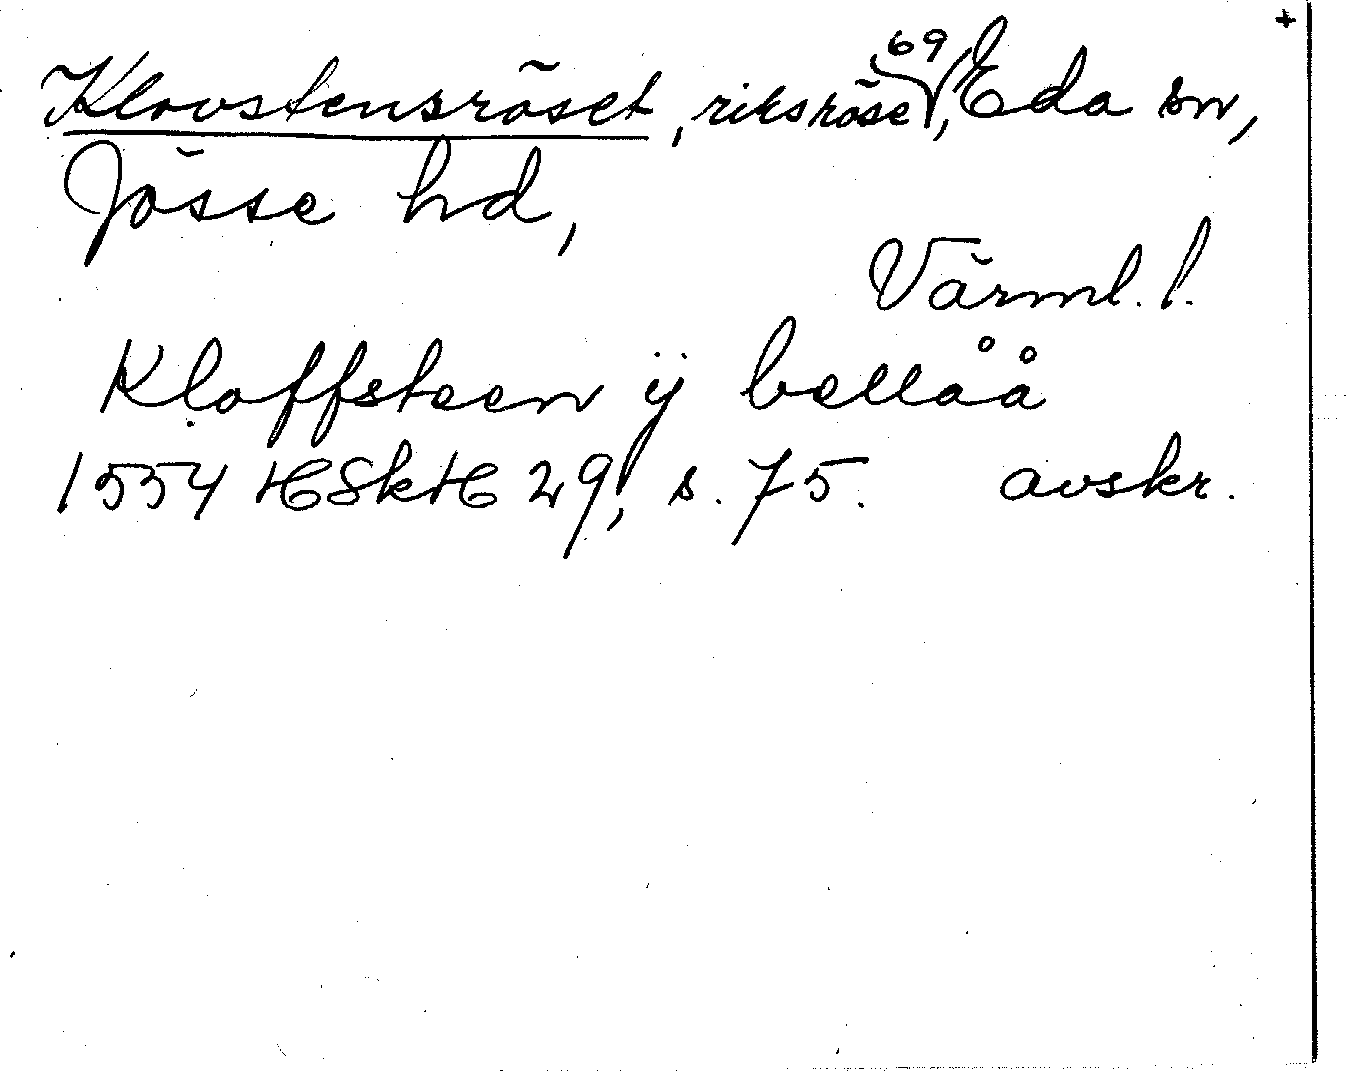 +
Klovstensröset, riksröse 69, Eda sn,
Jösse hd,
Värml. l.
Kloffsteen ÿ bellåå
1554 HSkH 29, s. 75. avskr.